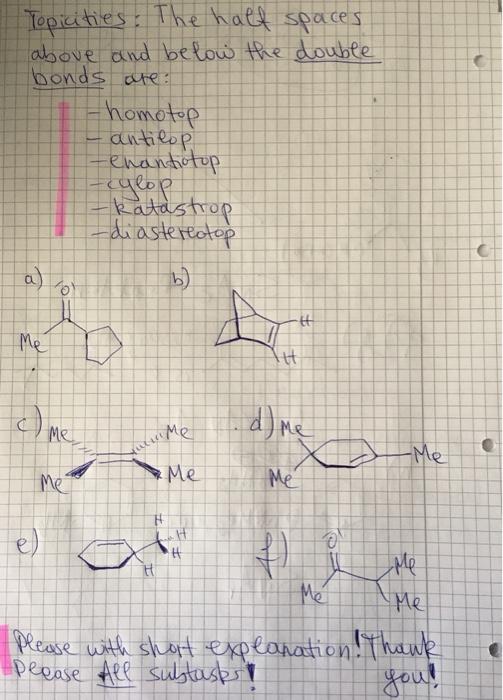 Topicities: The half spaces
above and below the double
bonds are:
- homotop
- antilop
- enantiotop
- cylop
- katastrop
- diastereotop
a) b)
O
Me
H
H
c) Me Me d) Me
Me
Me Me Me
e) H f) O
H
H Me
H Me Me
Please with short explanation! Thank
Please All subtasks! you!